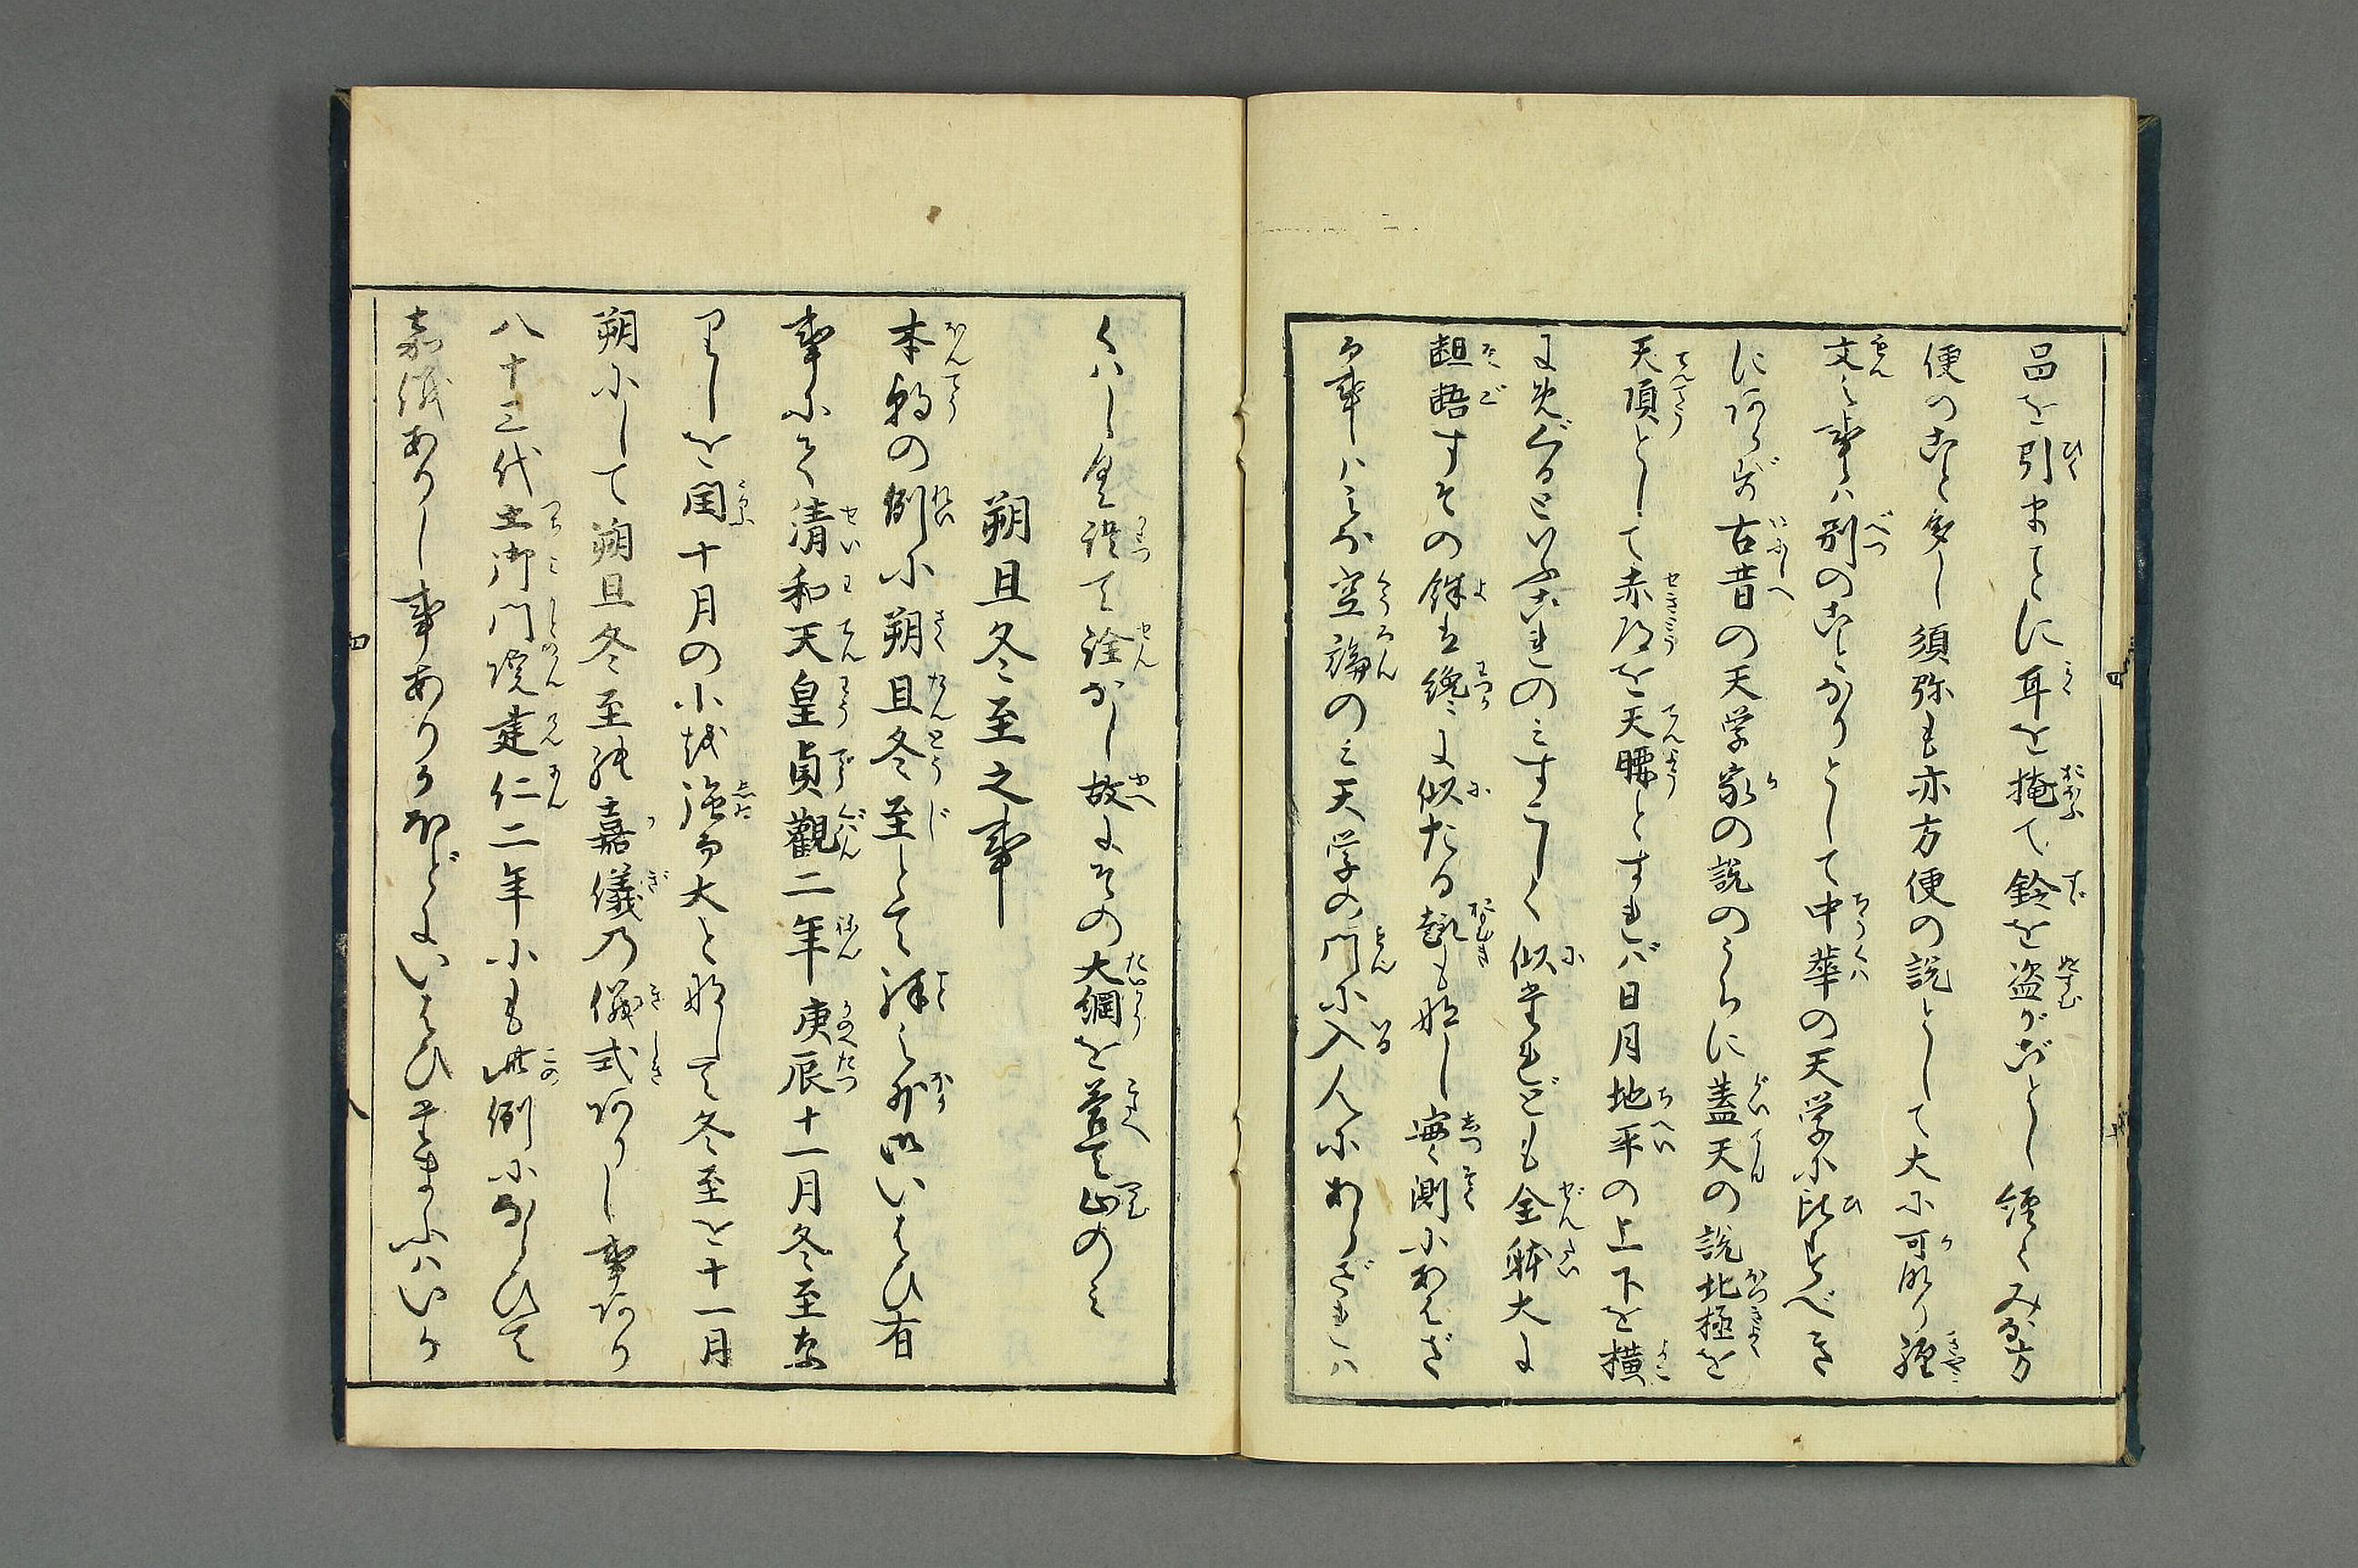 品を引まてに耳を掩て鈴を盗がごとし経にみな方
便のこと多し須弥も亦方便の説として大に可なり経
文の事は別のことなりとして中華の天学に比すべき
にあらず古昔の天学家の説のうちに蓋天の説北極を
天頂として赤道を天腰とすれバ日月地平の上下を横
に先ぐるといふこれのミすこしく似たれども全躰大に
齟齬すその餘は纔に似たる趣も無し実測にあはざ
る事ハみな空論のミ天学の門に入人にあらざれハ
くハしく説て詮なし故にその大綱を答て止のミ
朔旦冬至之事
本朝の例に朔旦冬至とて殊之外御いはひ有
事にて清和天皇貞觀二年庚辰十一月冬至
りしを閏十月の小を強て大と成して冬至を十一月
朔にして朔旦冬至の嘉儀の儀式ありし事あり
八十三代土御門院建仁二年にも此例にならひて
嘉儀ありし事ありかほどにいはひたまふハいか
四
四